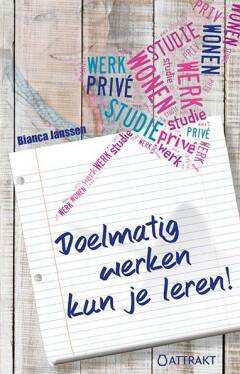 PRIV
WONEN
STUDIE
WERK
studie
WERK
PRIVÉ
WONEN
WERK
STUDIE
studie
privé
PRIVÉ
werk
WERK
Bianca Janssen
WERK studie
WERK WONEN
Doelmatig
werken
kun je leren!
ATTRAKT